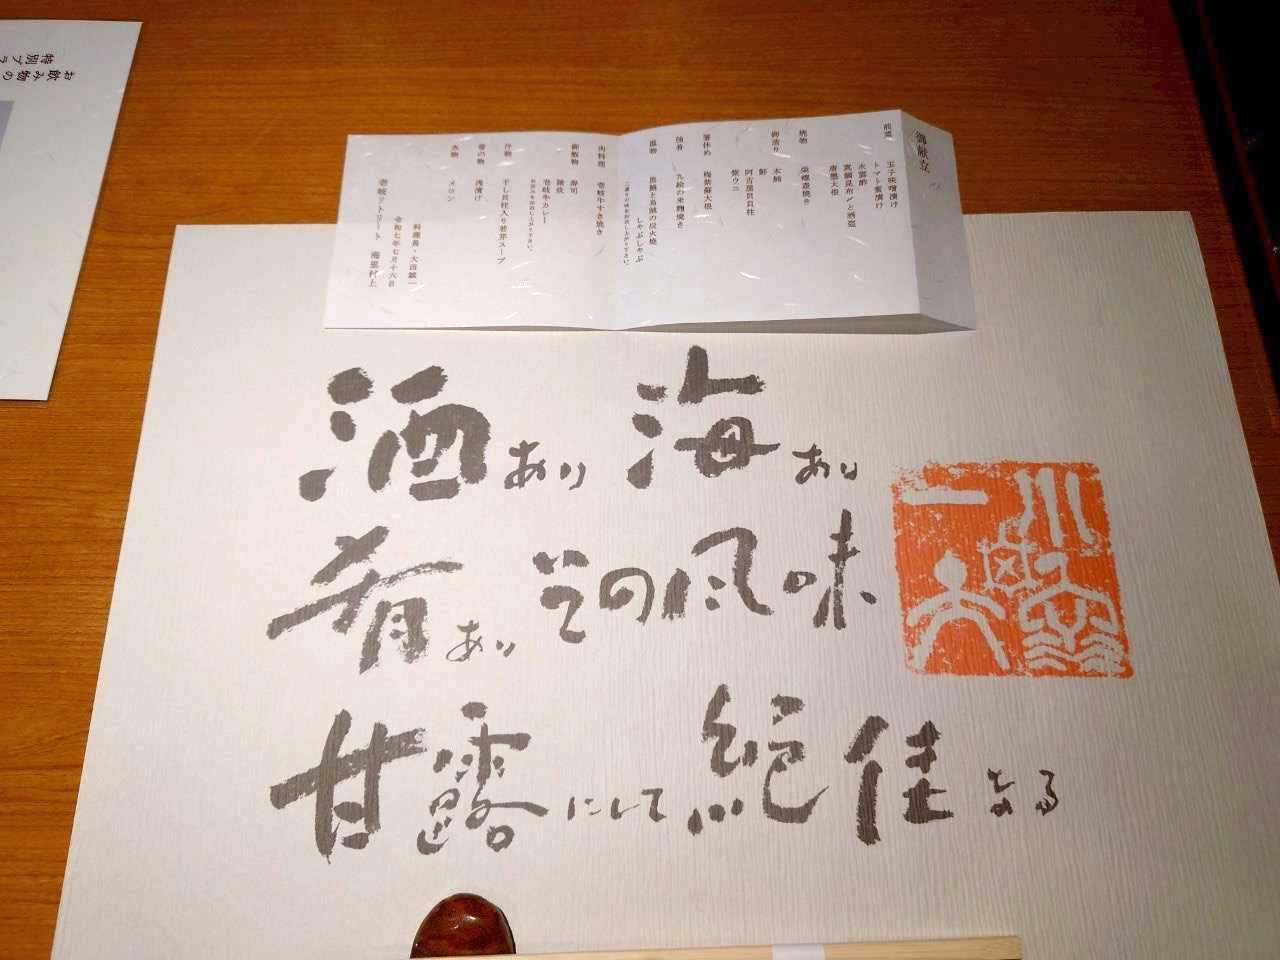 お飲み物の
特別プラ
御献立
前菜
玉子味噌漬け
トマト蜜漬け
水雲酢
真鯛昆布〆と酒盗
唐墨大根
焼物
栄螺壺焼き
御造り
本鮪
鮃
阿古屋貝貝柱
紫ウニ
箸休め
梅紫蘇大根
強肴
九絵の米麹焼き
温物
黒鮑と烏賊の炭火焼
しゃぶしゃぶ
肉料理
壱岐牛すき焼き
御飯物
寿司
雑炊
壱岐牛カレー
汁物
干し貝柱入り若芽スープ
香の物
浅漬け
水物
メロン
令和七年七月十六日
壱岐リトリート 海里村上
酒あり 海あり
肴あり その風味
甘露にして 絶佳なる